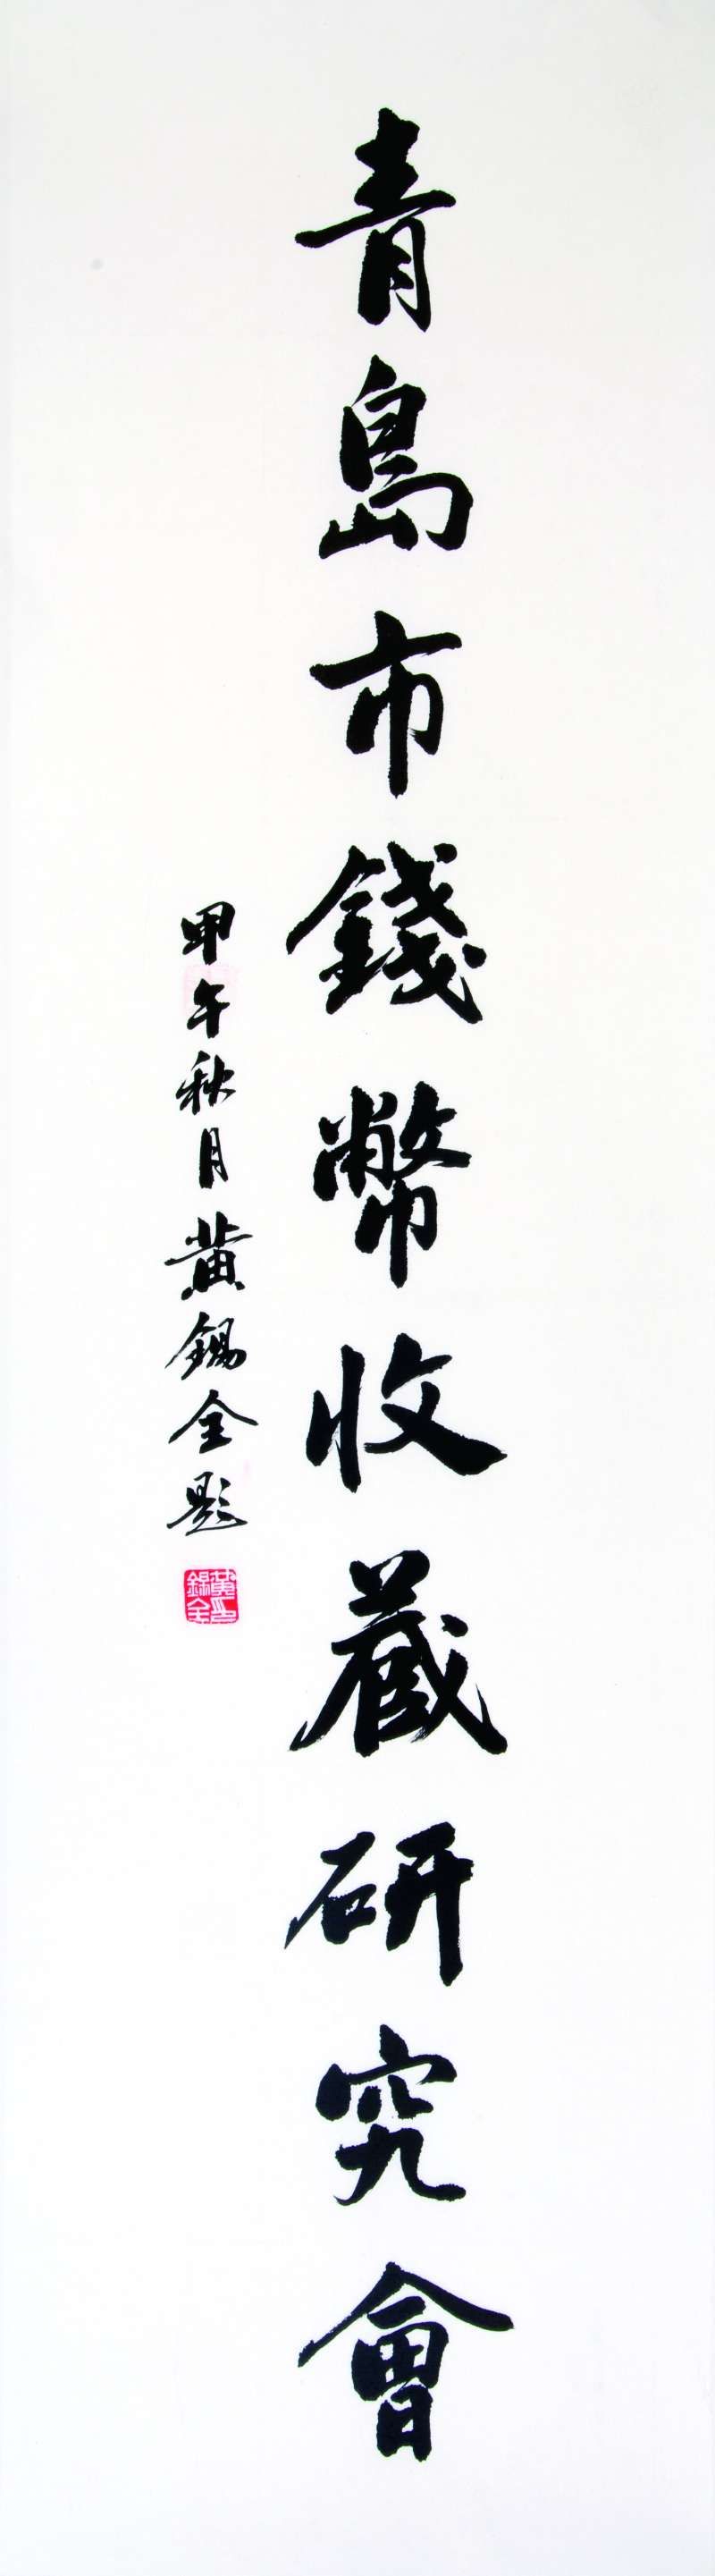 青島市錢幣收藏研究會
甲午秋月黃錫全題
黃錫全印